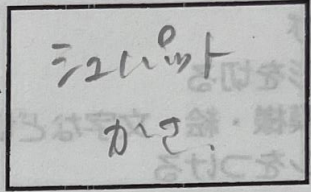 シュパット
かさ.